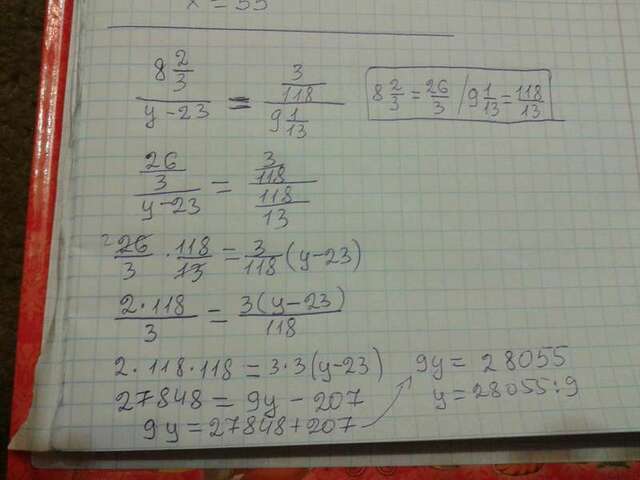 x = 55
8 2/3 / y - 23 = 3/118 / 9 1/13
8 2/3 = 26/3 / 9 1/13 = 118/13
26/3 / y - 23 = 3/118 / 118/13
2 26/3 · 118/13 = 3/118 (y - 23)
2 · 118 / 3 = 3(y - 23) / 118
2 · 118 · 118 = 3 · 3 (y - 23)
27848 = 9y - 207
9y = 27848 + 207
9y = 28055
y = 28055 : 9